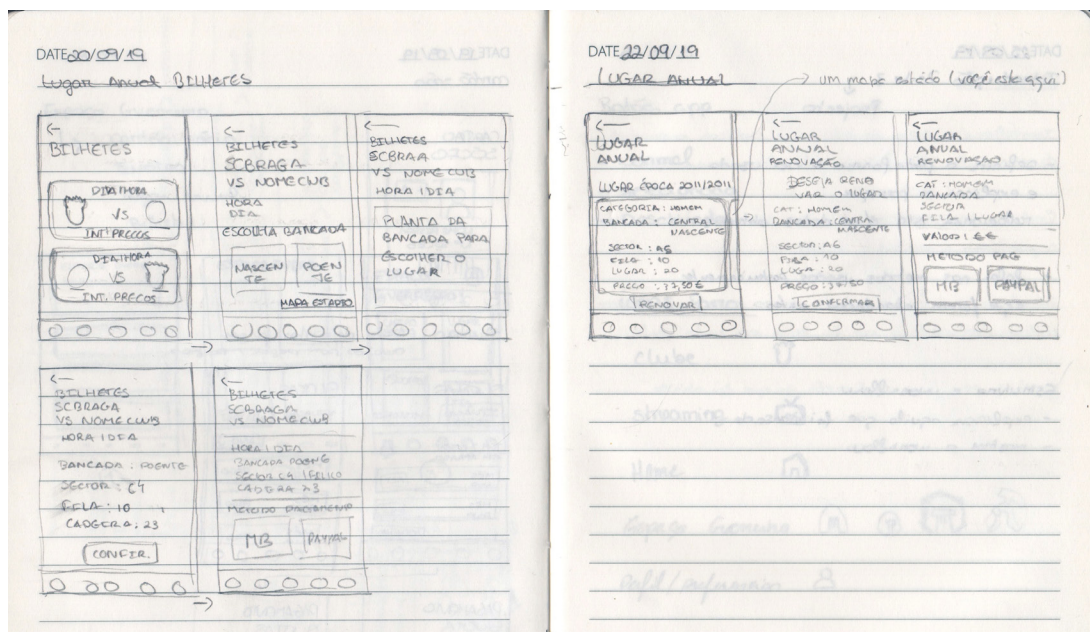 DATE 20/09/19
Lugar Anual BILHETES
←
BILHETES
DIA/HORA
VS
INT. PRECOS
DIA/HORA
VS
INT. PRECOS
←
BILHETES
SCBRAGA
VS NOMECLUB
HORA
DIA
ESCOLHA BANCADA
NASCEN
TE
POEN
TE
MAPA ESTADIO
←
BILHETES
SCBRAA
VS NOME CLUB
HORA | DIA
PLANTA DA
BANCADA PARA
ESCOLHER O
LUGAR
→
→
←
BILHETES
SCBRAGA
VS NOMECLUB
HORA | DIA
BANCADA : POENTE
SECTOR : C4
FILA : 10
CADEIRA : 23
CONFIR.
←
BILHETES
SCBRAGA
VS NOMECLUB
HORA | DIA
BANCADA POENTE
SECTOR C4
CADEIRA 23
METODO PAGAMENTO
MB
PAYPAL
→
DATE 22/09/19
LUGAR ANUAL
→ um mapa estádio (você este aqui)
←
LUGAR
ANUAL
LUGAR ÉPOCA 2011/2011
CATEGORIA : HOMEM
BANCADA : CENTRAL
NASCENTE
SECTOR : A6
FILA : 10
LUGAR : 20
PRECO : 37,50€
RENOVAR
→
←
LUGAR
ANNAL
RENOVAÇÃO
DESEJA RENO
VAR O LUGAR
CAT : HOMEM
BANCADA : CENTRA
NASCENTE
SECTOR : A6
FILA : 10
LUGA : 20
PREÇO : 37,50
CONFIRMAR
←
LUGAR
ANUAL
RENOVAÇAO
CAT : HOMEM
BANCADA
SECTOR
FILA | LUGAR
VALOR | €€
METODO PAG
MB
PAYPAL